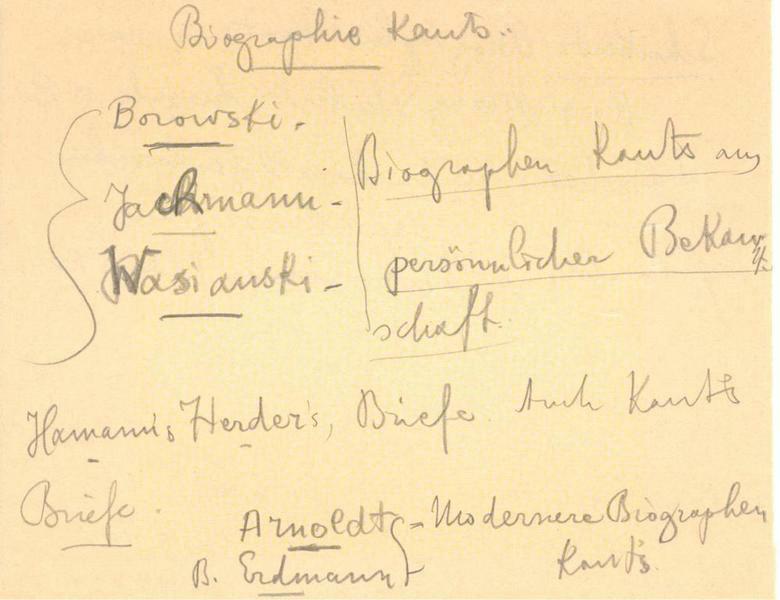 Biographie Kants..
Borowski.
Jachmann -
Wasianski -
Biographen Kants aus
persönnlicher Bekannt
schaft.
Hamann's Herder's, Briefe. Auch Kants
Briefe.
Arnoldt - Modernere Biographen
B. Erdmann Kants.